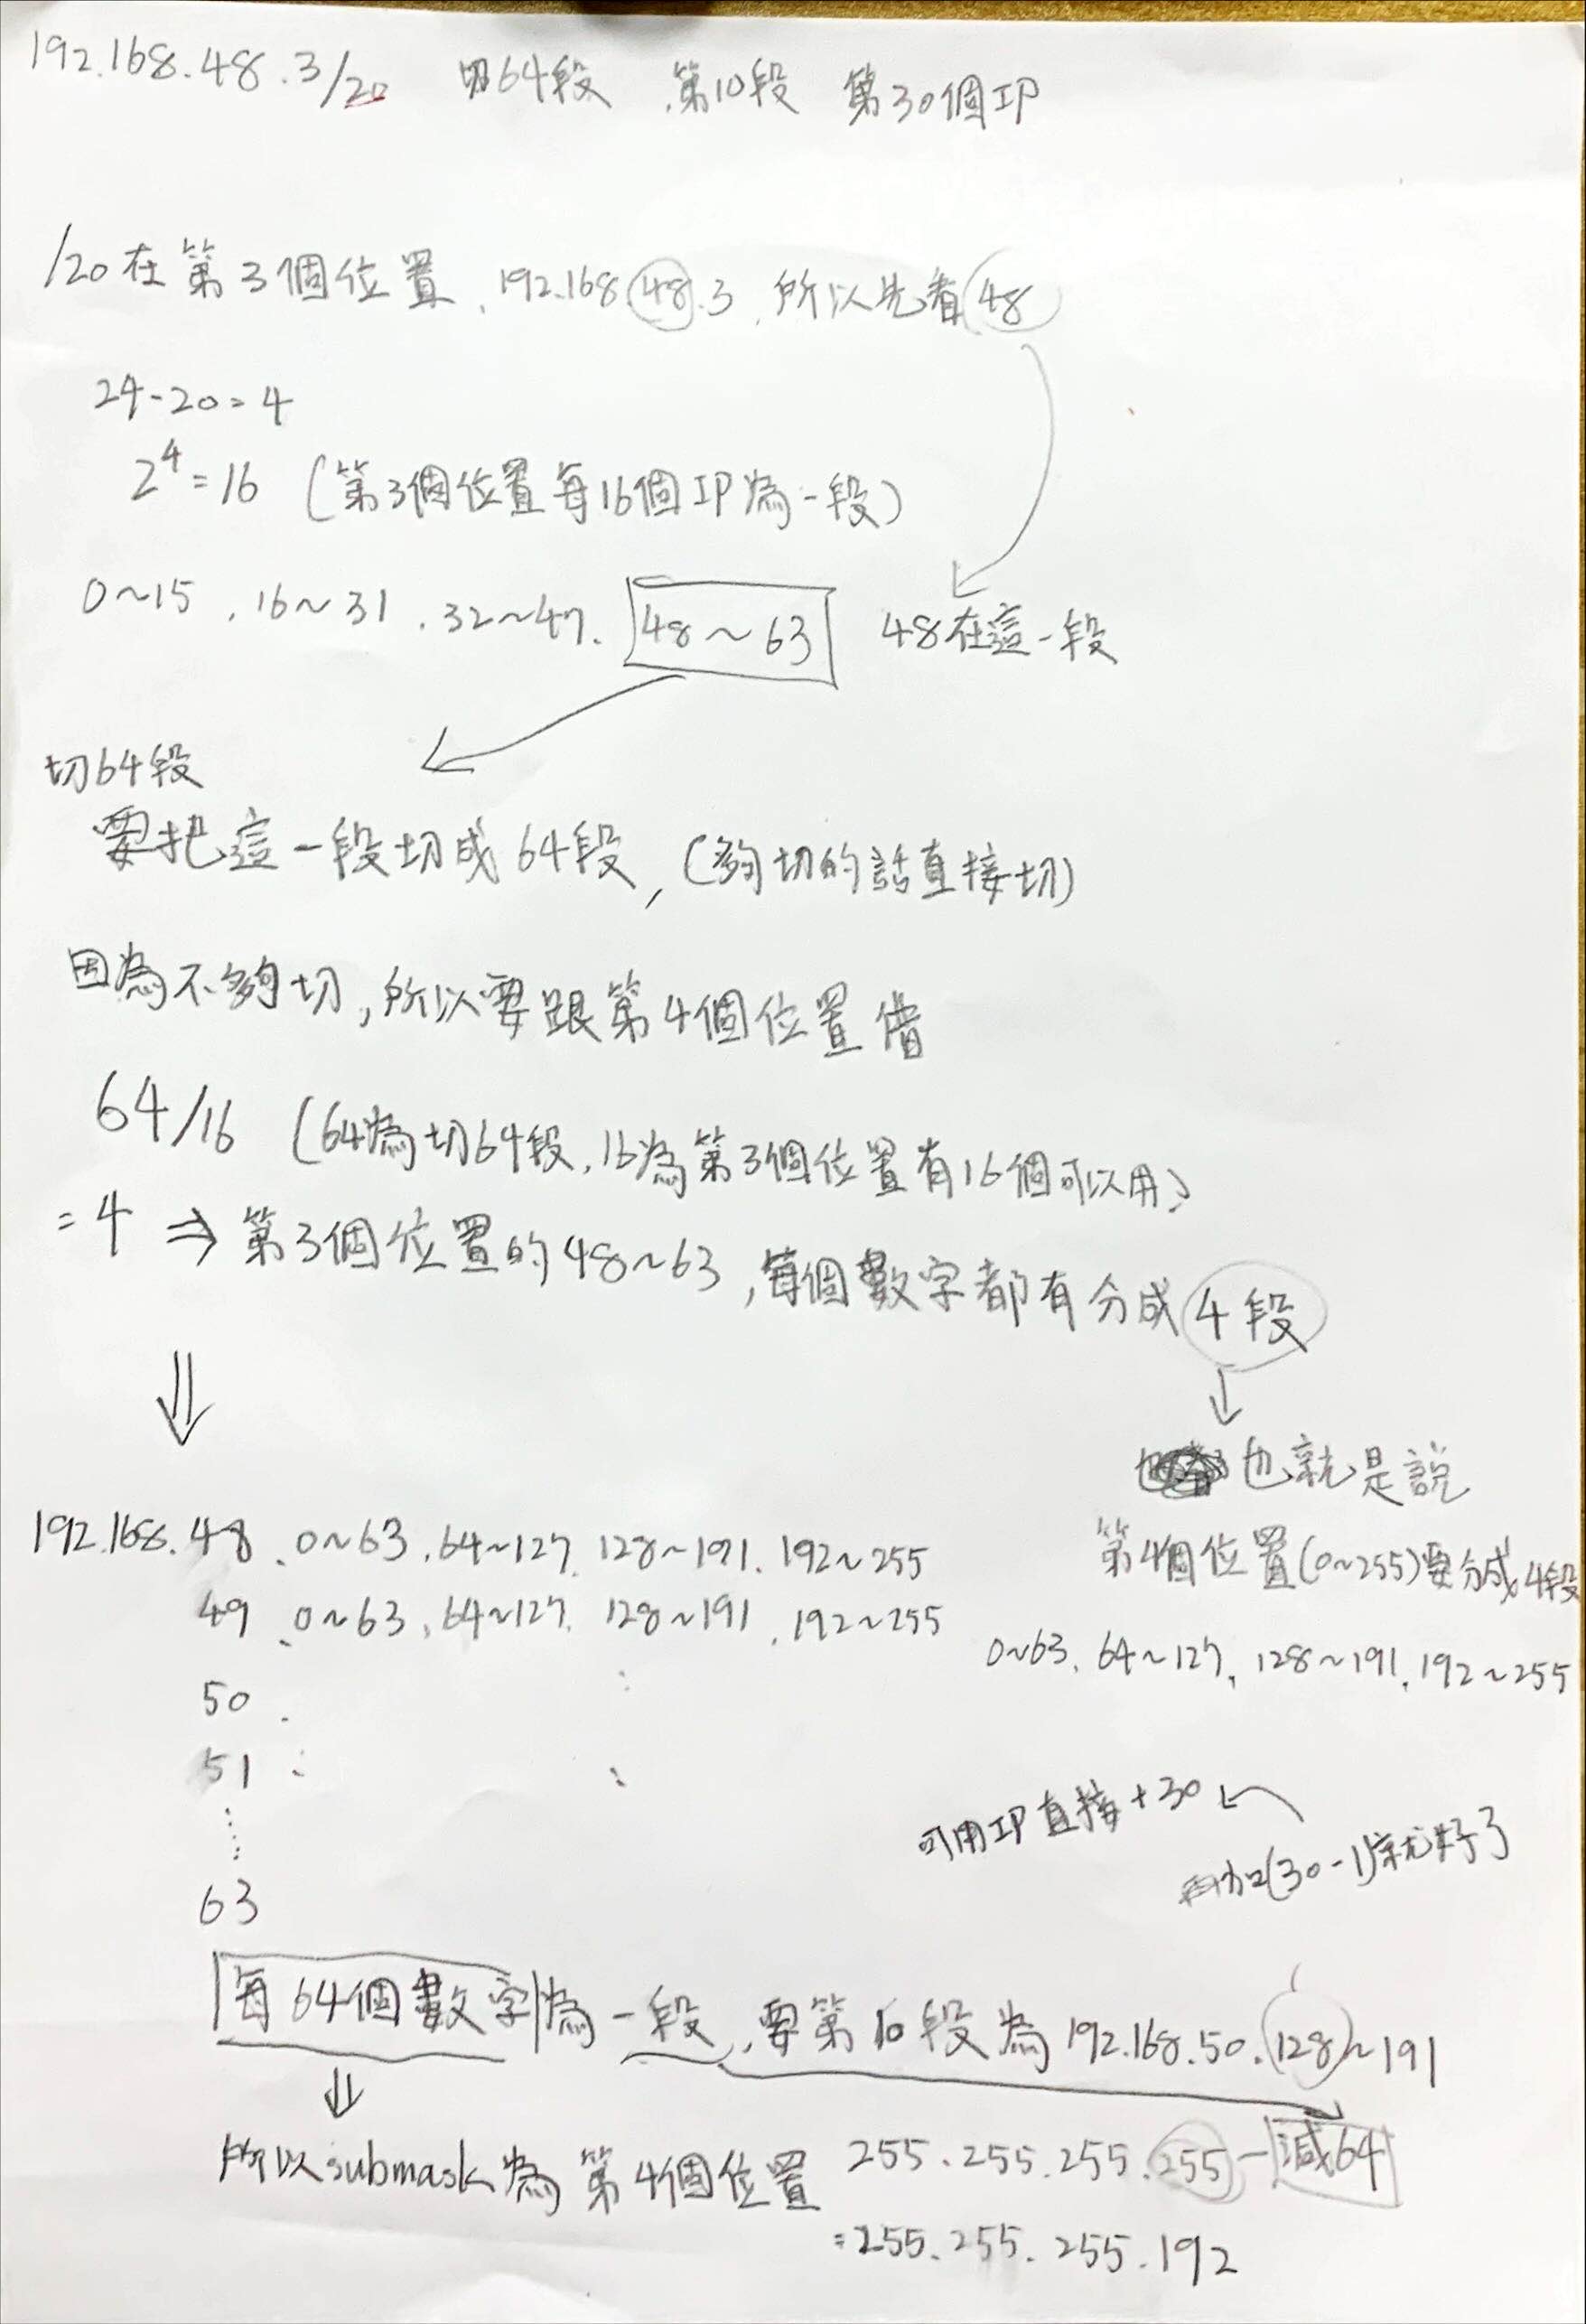 192.168.48.3/20 切64段 .第10段 第30個IP
/20在第3個位置、192.168.48.3、所以先看48
24-20=4
2⁴=16 (第3個位置每16個IP為一段)
0~15、16~31、32~47、48~63 48在這一段
切64段
要把這一段切成64段,(夠切的話直接切)
因為不夠切,所以要跟第4個位置借
64/16 (64為切64段,16為第3個位置有16個可以用)
=4 ⇒ 第3個位置的48~63,每個數字都有分成4段
也就是說
第4個位置(0~255)要分成4段
0~63、64~127、128~191、192~255
192.168.48.0~63、64~127、128~191、192~255
49、0~63、64~127、128~191、192~255
50
51
63
可用IP直接+30
再加(30-1)就好了
每64個數字為一段,要第10段為192.168.50.128~191
所以submask為第4個位置 255.255.255.255-減64
=255.255.255.192